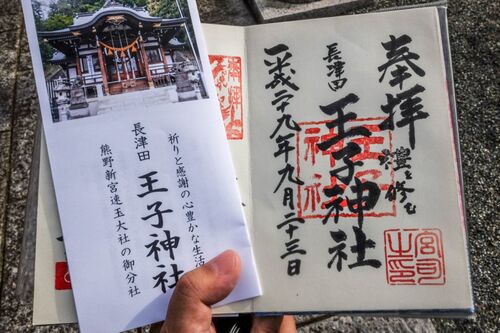 祈りと感謝の心豊かな生活
長津田 王子神社
熊野新宮速玉大社の御分社
奉拝
禮を修む
長津田 王子神社
平成二十九年九月二十三日
王子
神社
宮司
之印